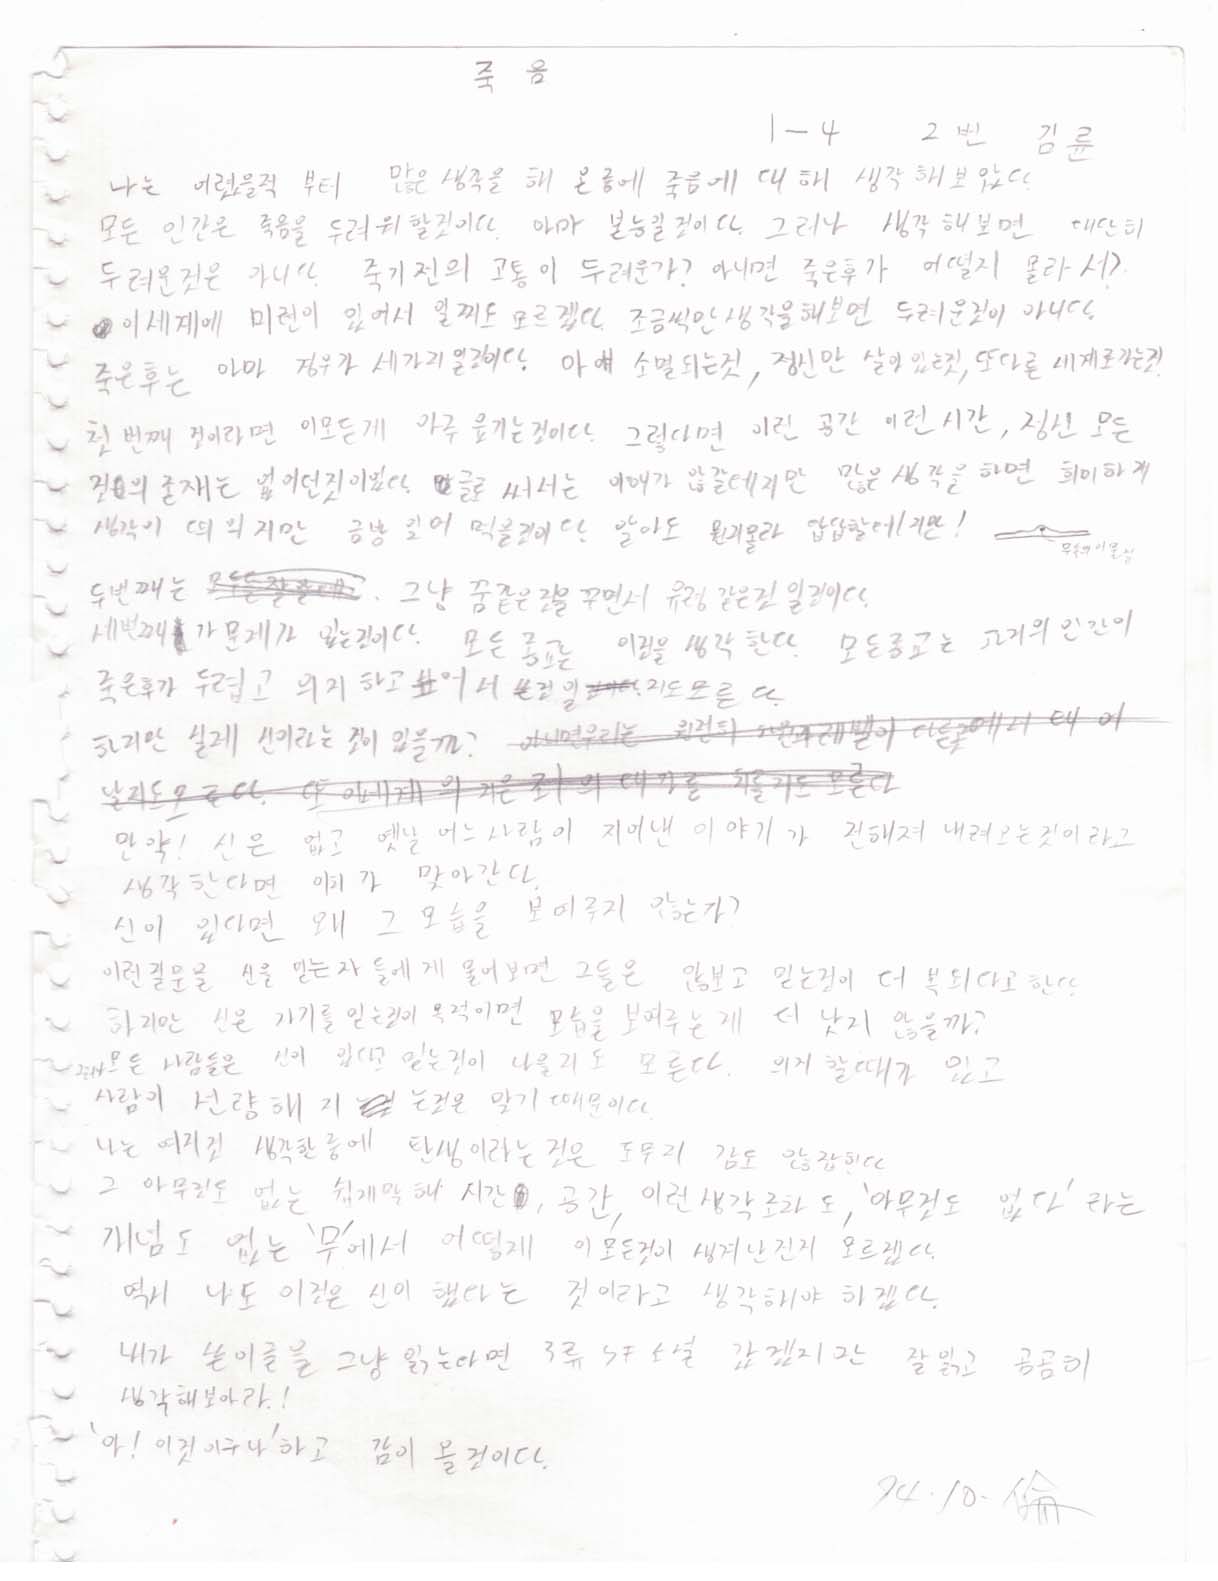 죽음
1-4 2번 김륜
나는 어렸을적 부터 많은 생각을 해 온중에 죽음에 대해 생각해보았다.
모든 인간은 죽음을 두려워할것이다. 아마 본능일것이다. 그러나 생각해보면 대단히
두려운것은 아니다. 죽기전의 고통이 두려운가? 아니면 죽은후가 어떨지 몰라서?
이세계에 미련이 있어서 일찌도 모르겠다. 조금씩만생각을해보면 두려운것이 아니다.
죽은후는 아마 경우가 세가지일것이다. 아얘 소멸되는것, 정신만 살아있는것, 또다른 세계로가는것.
첫번째 것이라면 이모든게 아주 웃기는것이다. 그렇다면 이런 공간 이런시간, 정신 모든
것의 존재는 없어던것이였다. 글로 써서는 이해가 않갈테지만 많은생각을하면 희미하게
생각이 떠 의지만 금방 잊어 먹을것이다. 알아도 뭔지몰라 답답할테지만!
두번째는 . 그냥 꿈같은것을 꾸면서 유령같은것 일것이다.
세번째 가 문제가 있는것이다. 모든 종교는 이것을 생각한다. 모든종교는 고거의 인간이
죽은후가 두렵고 의지하고싶어서 쓴것일 지도모른다.
하지만 실제 신이라는 것이 있을까? 아니면우리는 완전히 다른곳에서 태어
날지도모른다. 또 이세계의 지은 죄의 대가를 치를지도 모른다
만약! 신은 없고 옛날 어느사람이 지어낸 이야기가 전해져 내려오는것이라고
생각한다면 이치가 맞아간다.
신이 있다면 왜 그 모습을 보여주지 않는가?
이런질문을 신을 믿는자 들에게 물어보면 그들은 않보고 믿는것이 더 복되다고한다.
하지만 신은 자기를 믿는것이 목적이면 모습을 보여주는게 더 낫지 않을까?
모든 사람들은 신이 있다고 믿는것이 나을지도 모른다. 의지할때가 있고
사람이 선량해 지 는것은 맞기때문이다.
나는 여지껏 생각한중에 탄생이라는 것은 도무지 감도 않잡힌다
그 아무것도 없는 쉽게말해 시간, 공간, 이런생각조차도, '아무것도 없다' 라는
개념도 없는 '무'에서 어떻게 이모든것이 생겨난건지 모르겠다.
역시 나도 이것은 신이 했다는 것이라고 생각해야 하겠다.
내가 쓴이글을 그냥 읽는다면 3류 SF소설 같겠지만 잘읽고 곰곰히
생각해보아라.!
'아! 이것이구나'하고 감이 올것이다.
94.10. 倫